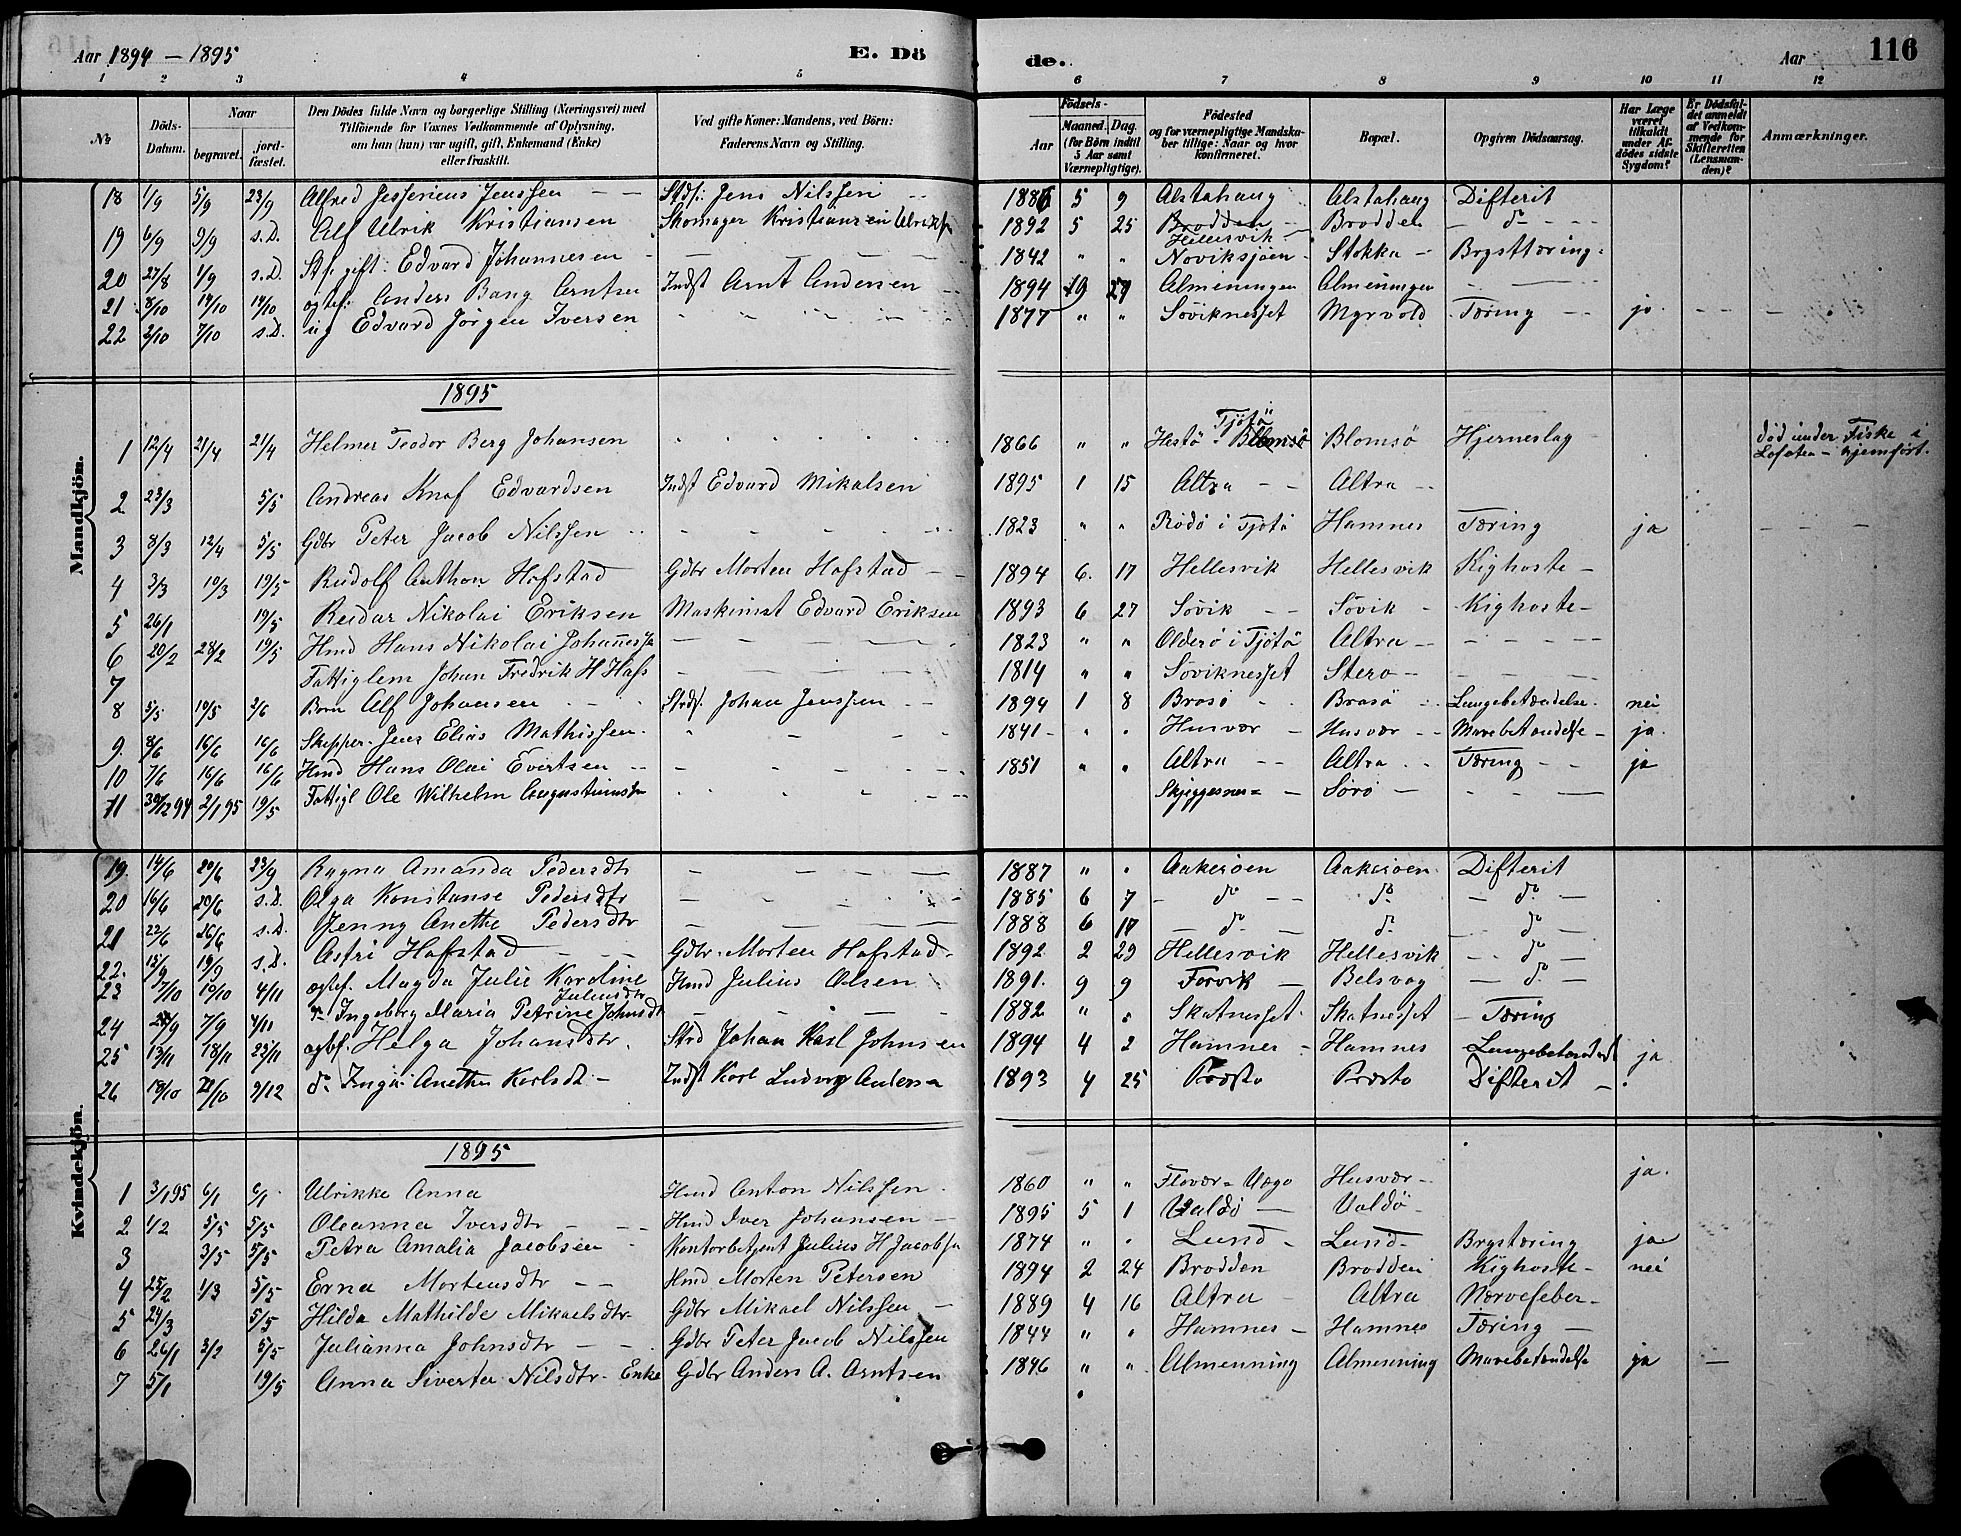 Aar 1894 – 1895
E. Dö
de.
Aar
116
1 2 3 4 5 6 7 8 9 10 11 12
No
Döds-Datum.
Naar
begravet.
jord-fæstet.
Den Dödes fulde Navn og borgerlige Stilling (Næringsvei) med
Tilföiende for Voxnes Vedkommende af Oplysning,
om han (hun) var ugift, gift, Enkemand (Enke)
eller fraskilt.
Ved gifte Koner: Mandens, ved Börn:
Faderens Navn og Stilling.
Födsels-
Aar
Maaned. Dag.
(for Börn indtil
5 Aar samt
Værnepligtige).
Födested
og for værnepligtige Mandska-
ber tillige: Naar og hvor
konfirmeret.
Bopæl.
Opgiven Dödsaarsag.
Har Læge
været
tilkaldt
under Af-
dödes sidste
Sygdom?
Er Dödsfal-
det anmeldt
af Vedkom-
mende for
Skifteretten
(Lensman-
den)?
Anmærkninger.
Mandkjön.
18 1/9 5/9 23/9 Alfred Jenssen – – Strdf. Jens Nilssen 1886 5 9 Alstahaug Alstahaug Difterit
19 6/9 9/9 s.D. Alf Ulrik Kristiansen Skomager Kristian 1892 5 25 Brodden – Brodden – do – –
20 27/8 1/9 s.D. Str. gift: Edvard Johannesen – 1842 " " Hellesvik Noviksjøen – Stokka – Brysttæring
21 8/10 14/10 14/10 Anders Bang Arntsen Indst Arnt Andersen 1894 9 Almeningen Almeningen –
22 2/10 7/10 s.D. ug Edvard Jörgen Iversen 1877 " " Söviknesset Myrvold Tæring – – ja – –
1895
1 12/4 21/4 21/4 Helmer Teodor Berg Johansen 1866 " " Hestö i Tjötö Blomsö Blomsö Hjerneslag død under Fiske i
Lofoten – hjemført.
2 23/3 5/5 Andreas Knof Edvardsen Indst Edvard Mikalsen 1895 1 15 Altra – – Altra –
3 8/3 12/4 5/5 Gdbr Peter Jacob Nilssen 1823 " " Rödö i Tjötö Hamnes Tæring ja
4 3/3 10/3 19/5 Rudolf Anthon Hofstad Gdbr Morten Hofstad – 1894 6. 17 Hellesvik Hellesvik Kighoste –
5 26/1 19/5 Reidar Nikolai Eriksen Maskinist Edvard Eriksen 1893 6 27 Sövik – – Sövik – Kighoste –
6 20/2 28/2 19/5 Hmd Hans Nikolai 1823 " " Olderö i Tjötö Altra – –
7 Fattiglem Johan Fredrik H 1814 " " Söviknesset Stero –
8 5/5 19/5 2/6 Barn Alf Johansen Strdf. Johan Jenssen – – 1894 1 8 Brasö Brasö Lungebetændelse nei
9. 8/6 16/6 16/6 Skipper Jens Elias Mathissen 1841 – " Husvær – Husvær – Mavebetændelse – ja
10 7/6 16/6 16/6 Hmd Hans Olai Evertsen 1851 " " Altra – – Altra Tæring – ja
11 30/12 94 2/1 95 19/5 Fattigl Ole Wilhelm Sörö –
Kvindekjön.
19. 14/6 20/6 23/9 Ragna Amanda Pedersdtr 1887 " " Aakersöen Aakersöen Difterit
20 16/6 20/6 s.D. Olga Konstanse Pedersdtr 1885 6 7 – do – – do – do –
21 22/6 26/6 s.D. Jenny Anethe Pedersdtr 1888 6 17 – do – do do –
22. 15/9 19/9 s.D. Astri Hofstad – – Gdbr. Morten Hofstad – 1892 2 29 Hellesvik Hellesvik – do –
23 7/10 10/10 4/11 Magda Julie Karoline Juliusdtr Hmd Julius Olsen 1891. 9 9 Forvik – Belsvåg – do –
24 7/9 4/11 do Ingeborg Maria Petrine Johnsdtr 1882 " Skatnesset Skatnesset – Tæring
25 13/11 18/11 25/11 Helga Johansdtr. Strd Johan Karl Johnsen 1894 4 2 Hamnes – Hamnes ja
26 18/10 9/12 do Inga Anethe Karlsdtr – Indst Karl Ludvig Andersen 1893 4 25 Præstø Præstø Difterit –
1895
1 3/1 95 6/1 6/1 Ulrikke Anna Hmd Anton Nilssen 1860 " " Flovær – Vægø Husvær – ja.
2 1/2 5/5 5/5 Oleanna Iversdtr – – Hmd Iver Johansen – 1895 5 1 Ualdö – Ualdö –
3 3/5 5/5 Petra Amalia Jacobsen Kontorbetjent Julius H Jacobsen 1874 " " Lund – Lund – Brysttæring ja
4 25/2 1/3 5/5 Erna Mortensdtr – – Hmd Morten Petersen 1894 2 24 Brodden Brodden Kighoste – nei
5 24/3 5/5 Hilda Mathilde Mikaelsdtr Gdbr Mikael Nilssen – 1889 4 16 Altra – Altra Nervefeber –
6 26/1 3/2 5/5 Julianna Johnsdtr – – Gdbr Peter Jacob Nilssen 1844 " " Hamnes – Hamnes Tæring –
7 5/1 19/5 Anna Siverta Nilsdtr – Enke Gdbr Anders A. Arntsen 1846 " " Almenning Almenning Mavebetændelse ja –